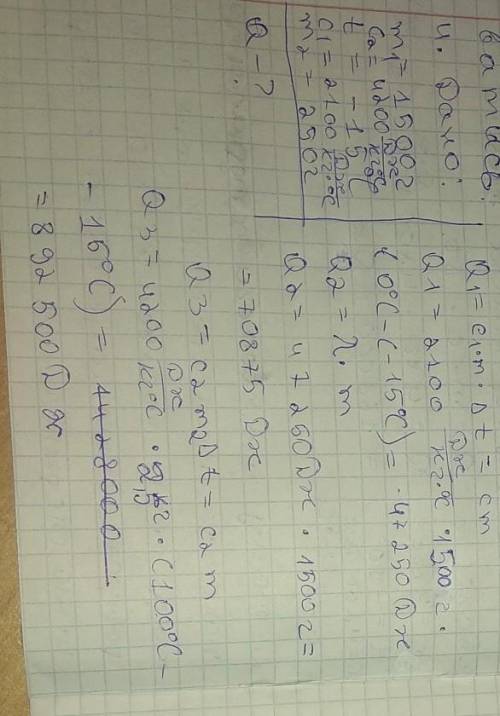 4. Дано:
m1 = 1500г
c2 = 4200 Дж/кг·°C
t = -15°C
c1 = 2100 Дж/кг·°C
m2 = 250г
Q - ?
Q1 = c1·m·Δt = cm
Q1 = 2100 Дж/кг·°C · 1500 г ·
(0°C - (-15°C) = 47250 Дж
Q2 = λ·m
Q2 = 47250 Дж · 1500 г =
= 70875 Дж
Q3 = c2 m2 Δt = c2 m
Q3 = 4200 Дж/кг·°C · 2,5 кг · (100°C -
- 15°C) = 4428000
= 892500 Дж